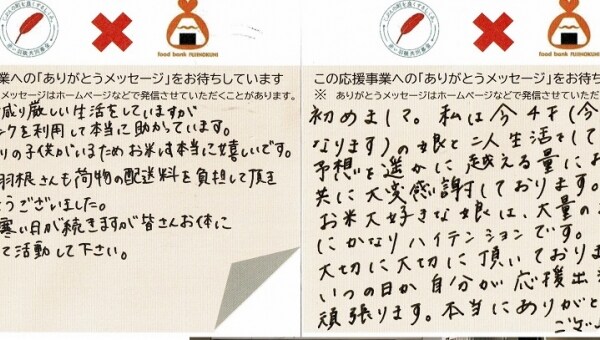 food bank FUJINOKUNI
業への「ありがとうメッセージ」をお待ちしています
りがとうメッセージはホームページなどで発信させていただくことがあります。
り厳しい生活をしていますが
ンクを利用して本当に助かっています。
りの子供がいるためお米は本当に嬉しいです。
羽根さんも荷物の配送料を負担して頂き
とうございました。
寒い日が続きますが皆さんお体に
て活動して下さい。
food bank FUJINOKUNI
この応援事業への「ありがとうメッセージ」をお待ち
※ ありがとうメッセージはホームページなどで発信させていただく
初めまして。私は今4才(今
なります)の娘と二人生活をして
予想を遥かに越える量にお
共に大変感謝しております。
お米大好きな娘は、大量のお
にかなりハイテンションです。
大切に大切に頂いておりま
いつの日か自分が応援出
頑張ります。本当にありがと
ござい